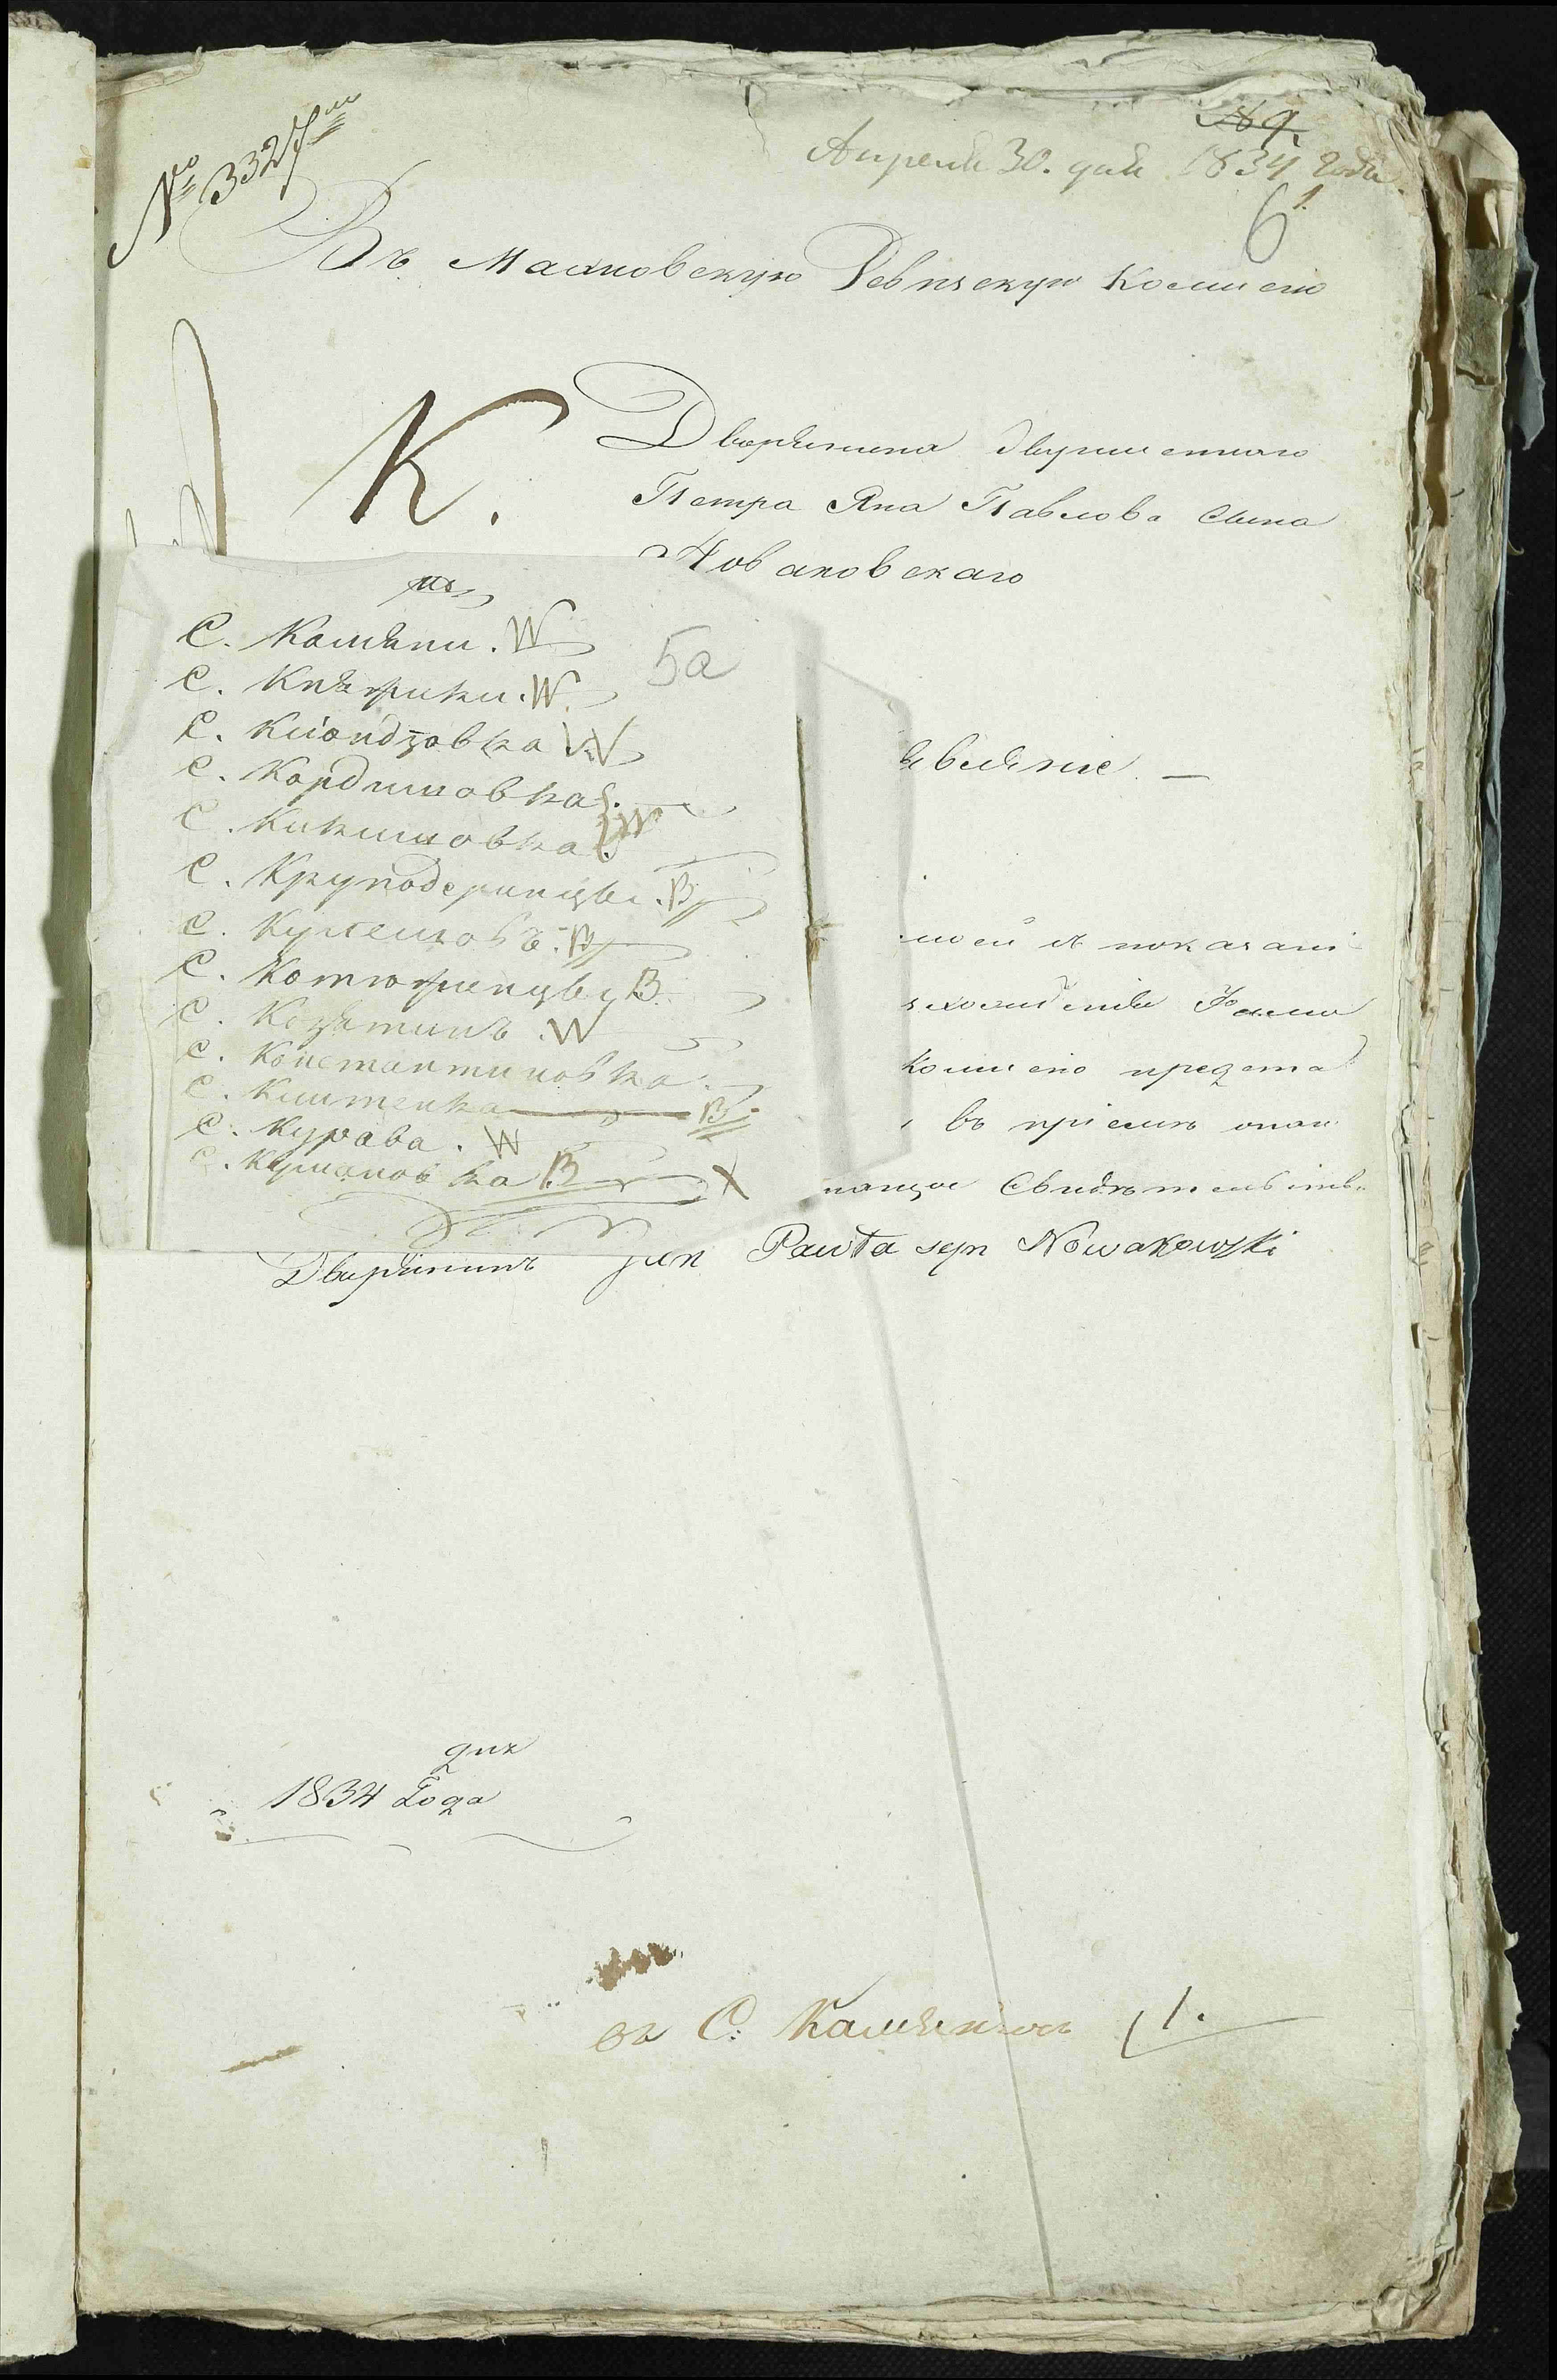 № 3327
Апреля 30. дня 1834 года.
6 1.
Въ Махновскую Ревизскую Комисию
К.
Дворянина двуименного
Петра Яна Павлова Сына
Новаковскаго
5а
С. Камяни. W
С. W.
С. Кіондзовка W
С. Кордишовка.
С. Кикишовка. W
С. Круподеринцы. В
С. Кутешовъ. В
С. Котюжинцы В
С. Козятинъ. W
С. Константиновка.
С. Киштенка В
С. Курава. W
С. Кумановка В X
явление. —
моей и показані
Фами
комисию предста
въ пріемѣ онаг
Свидѣтельство
Дворянинъ Jan Pawła syn Nowakowski
дня
1834 Года
С: 1.